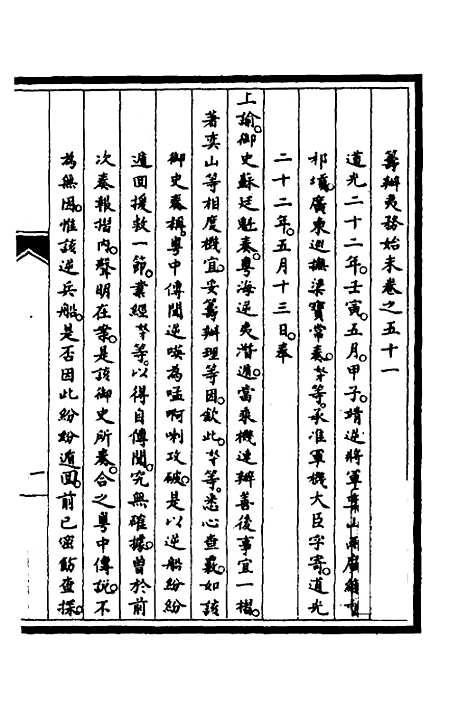 籌辦夷務始末卷之五十一
道光二十二年。壬寅。五月。甲子。靖逆將軍奕山兩廣總督
祁𡎴。廣東巡撫梁寶常奏。等。承准軍機大臣字寄。道光
二十二年。五月十三日。奉
上諭。御史蘇廷魁奏。粵海逆夷潛遁。當乘機速辦善後事宜一摺。
著奕山等相度機宜。妥籌辦理等因。欽此。等。悉心查覈。如該
御史奏稱。粵中傳聞逆𠸄為嗌啊喇攻破。是以逆船紛紛
遁回援救一節。業經等。以得自傳聞。究無確據。曾於前
次奏報摺內。聲明在案。是該御史所奏。合之粵中傳說。不
為無因。惟該逆兵船。是否因此紛紛遁回。前已密飭查探。
一